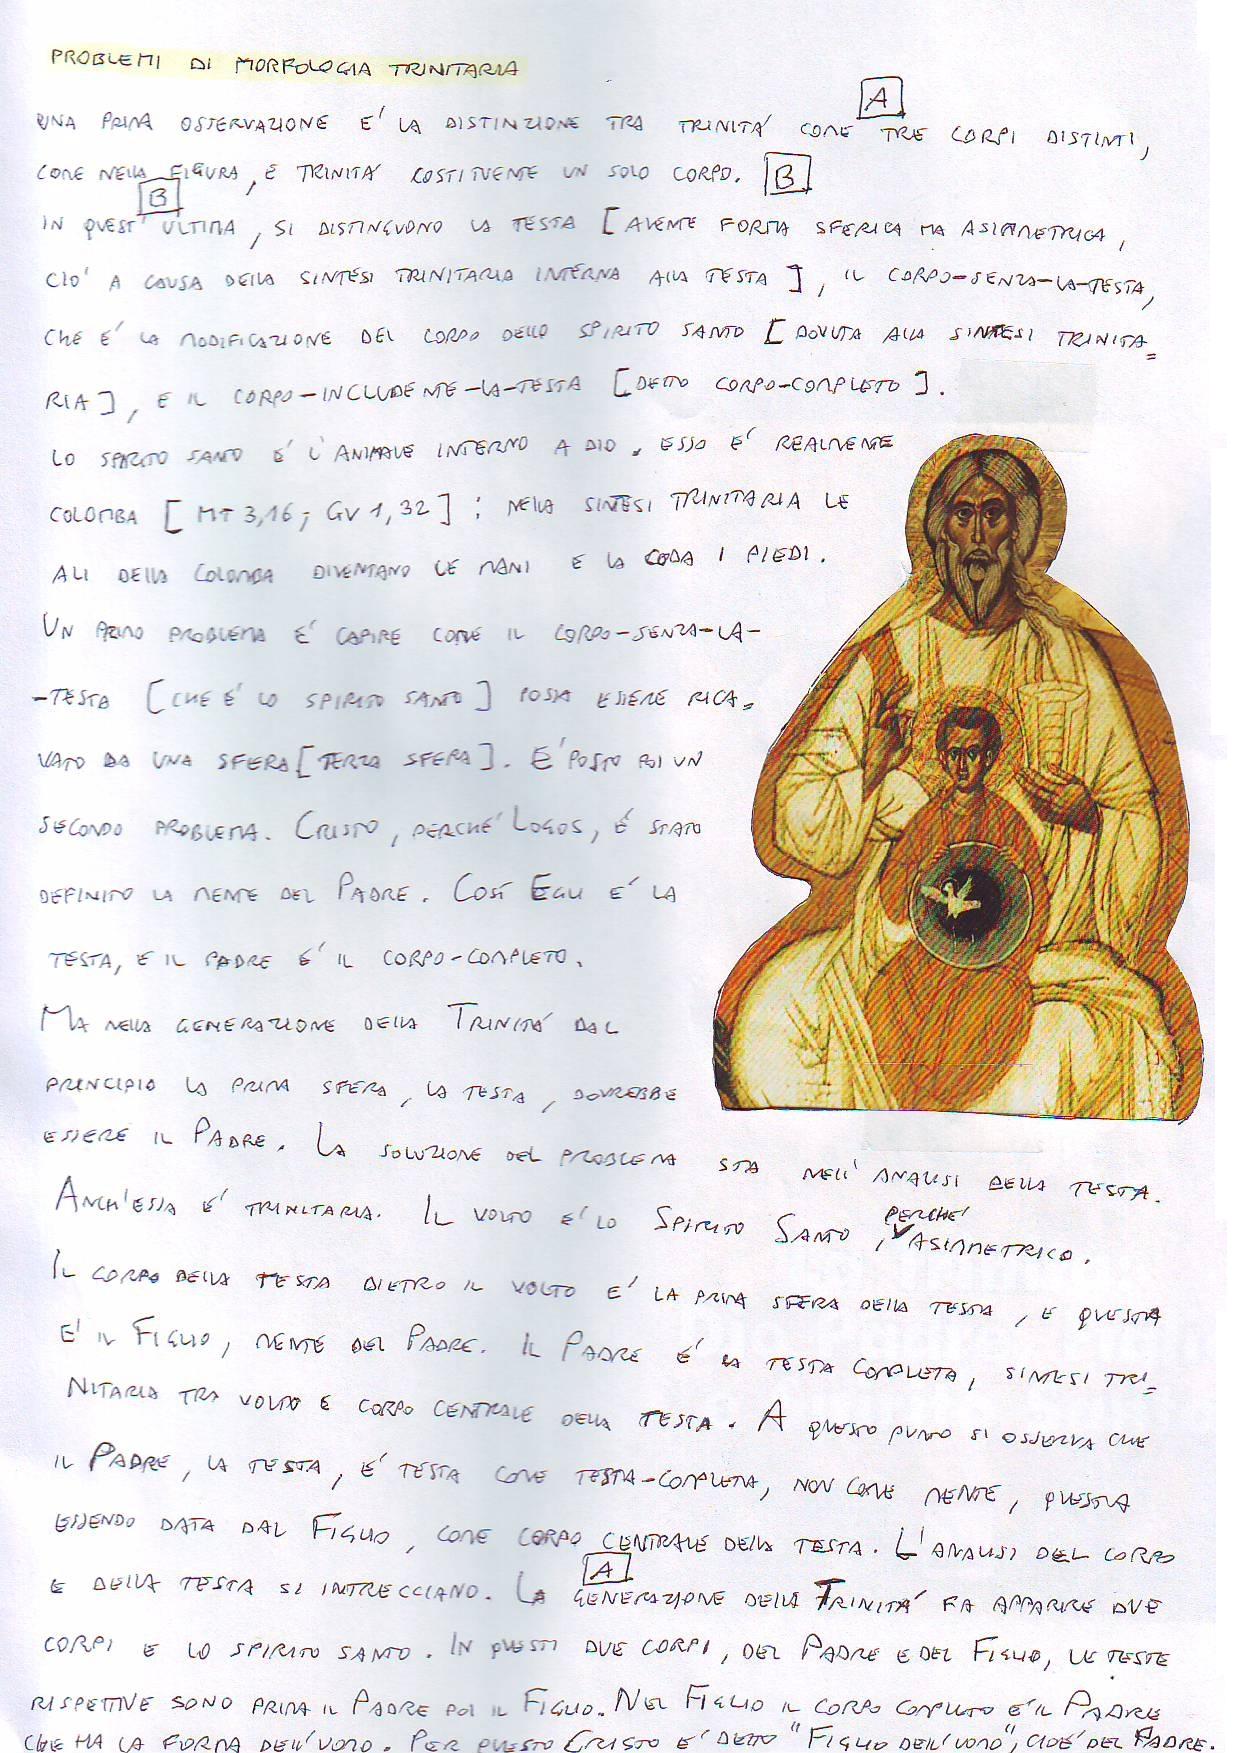 PROBLEMI DI MORFOLOGIA TRINITARIA
A
UNA PRIMA OSSERVAZIONE E' LA DISTINZIONE TRA TRINITA' COME TRE CORPI DISTINTI,
COME NELLA FIGURA, E TRINITA' COSTITUENTE UN SOLO CORPO. B
B
IN QUEST'ULTIMA, SI DISTINGUONO LA TESTA [AVENTE FORMA SFERICA MA ASIMMETRICA,
CIO' A CAUSA DELLA SINTESI TRINITARIA INTERNA ALLA TESTA], IL CORPO-SENZA-LA-TESTA,
CHE E' LA MODIFICAZIONE DEL CORPO DELLO SPIRITO SANTO [DOVUTA ALLA SINTESI TRINITA=
RIA], E IL CORPO-INCLUDENTE-LA-TESTA [DETTO CORPO-COMPLETO].
LO SPIRITO SANTO E' L'ANIMALE INTERNO A DIO. ESSO E' REALMENTE
COLOMBA [MT 3,16; GV 1,32]; NELLA SINTESI TRINITARIA LE
ALI DELLA COLOMBA DIVENTANO LE MANI E LA CODA I PIEDI.
UN PRIMO PROBLEMA E' CAPIRE COME IL CORPO-SENZA-LA-
-TESTA [CHE E' LO SPIRITO SANTO] POSSA ESSERE RICA=
VATO DA UNA SFERA [TERZA SFERA]. E' POSTO POI UN
SECONDO PROBLEMA. CRISTO, PERCHE' LOGOS, E' STATO
DEFINITO LA MENTE DEL PADRE. COSÍ EGLI E' LA
TESTA, E IL PADRE E' IL CORPO-COMPLETO.
MA NELLA GENERAZIONE DELLA TRINITA' DAL
PRINCIPIO LA PRIMA SFERA, LA TESTA, DOVREBBE
ESSERE IL PADRE. LA SOLUZIONE DEL PROBLEMA STA NELL'ANALISI DELLA TESTA.
ANCH'ESSA E' TRINITARIA. IL VOLTO E' LO SPIRITO SANTO, PERCHE' ASIMMETRICO.
IL CORPO DELLA TESTA DIETRO IL VOLTO E' LA PRIMA SFERA DELLA TESTA, E QUESTA
E' IL FIGLIO, MENTE DEL PADRE. IL PADRE E' LA TESTA COMPLETA, SINTESI TRI=
NITARIA TRA VOLTO E CORPO CENTRALE DELLA TESTA. A QUESTO PUNTO SI OSSERVA CHE
IL PADRE, LA TESTA, E' TESTA COME TESTA-COMPLETA, NON COME MENTE, QUESTA
ESSENDO DATA DAL FIGLIO, COME CORPO CENTRALE DELLA TESTA. L'ANALISI DEL CORPO
A
E DELLA TESTA SI INTRECCIANO. LA GENERAZIONE DELLA TRINITA' FA APPARIRE DUE
CORPI E LO SPIRITO SANTO. IN QUESTI DUE CORPI, DEL PADRE E DEL FIGLIO, LE TESTE
RISPETTIVE SONO PRIMA IL PADRE POI IL FIGLIO. NEL FIGLIO IL CORPO COMPLETO E' IL PADRE
CHE HA LA FORMA DELL'UOMO. PER QUESTO CRISTO E' DETTO "FIGLIO DELL'UOMO", CIOE' DEL PADRE.